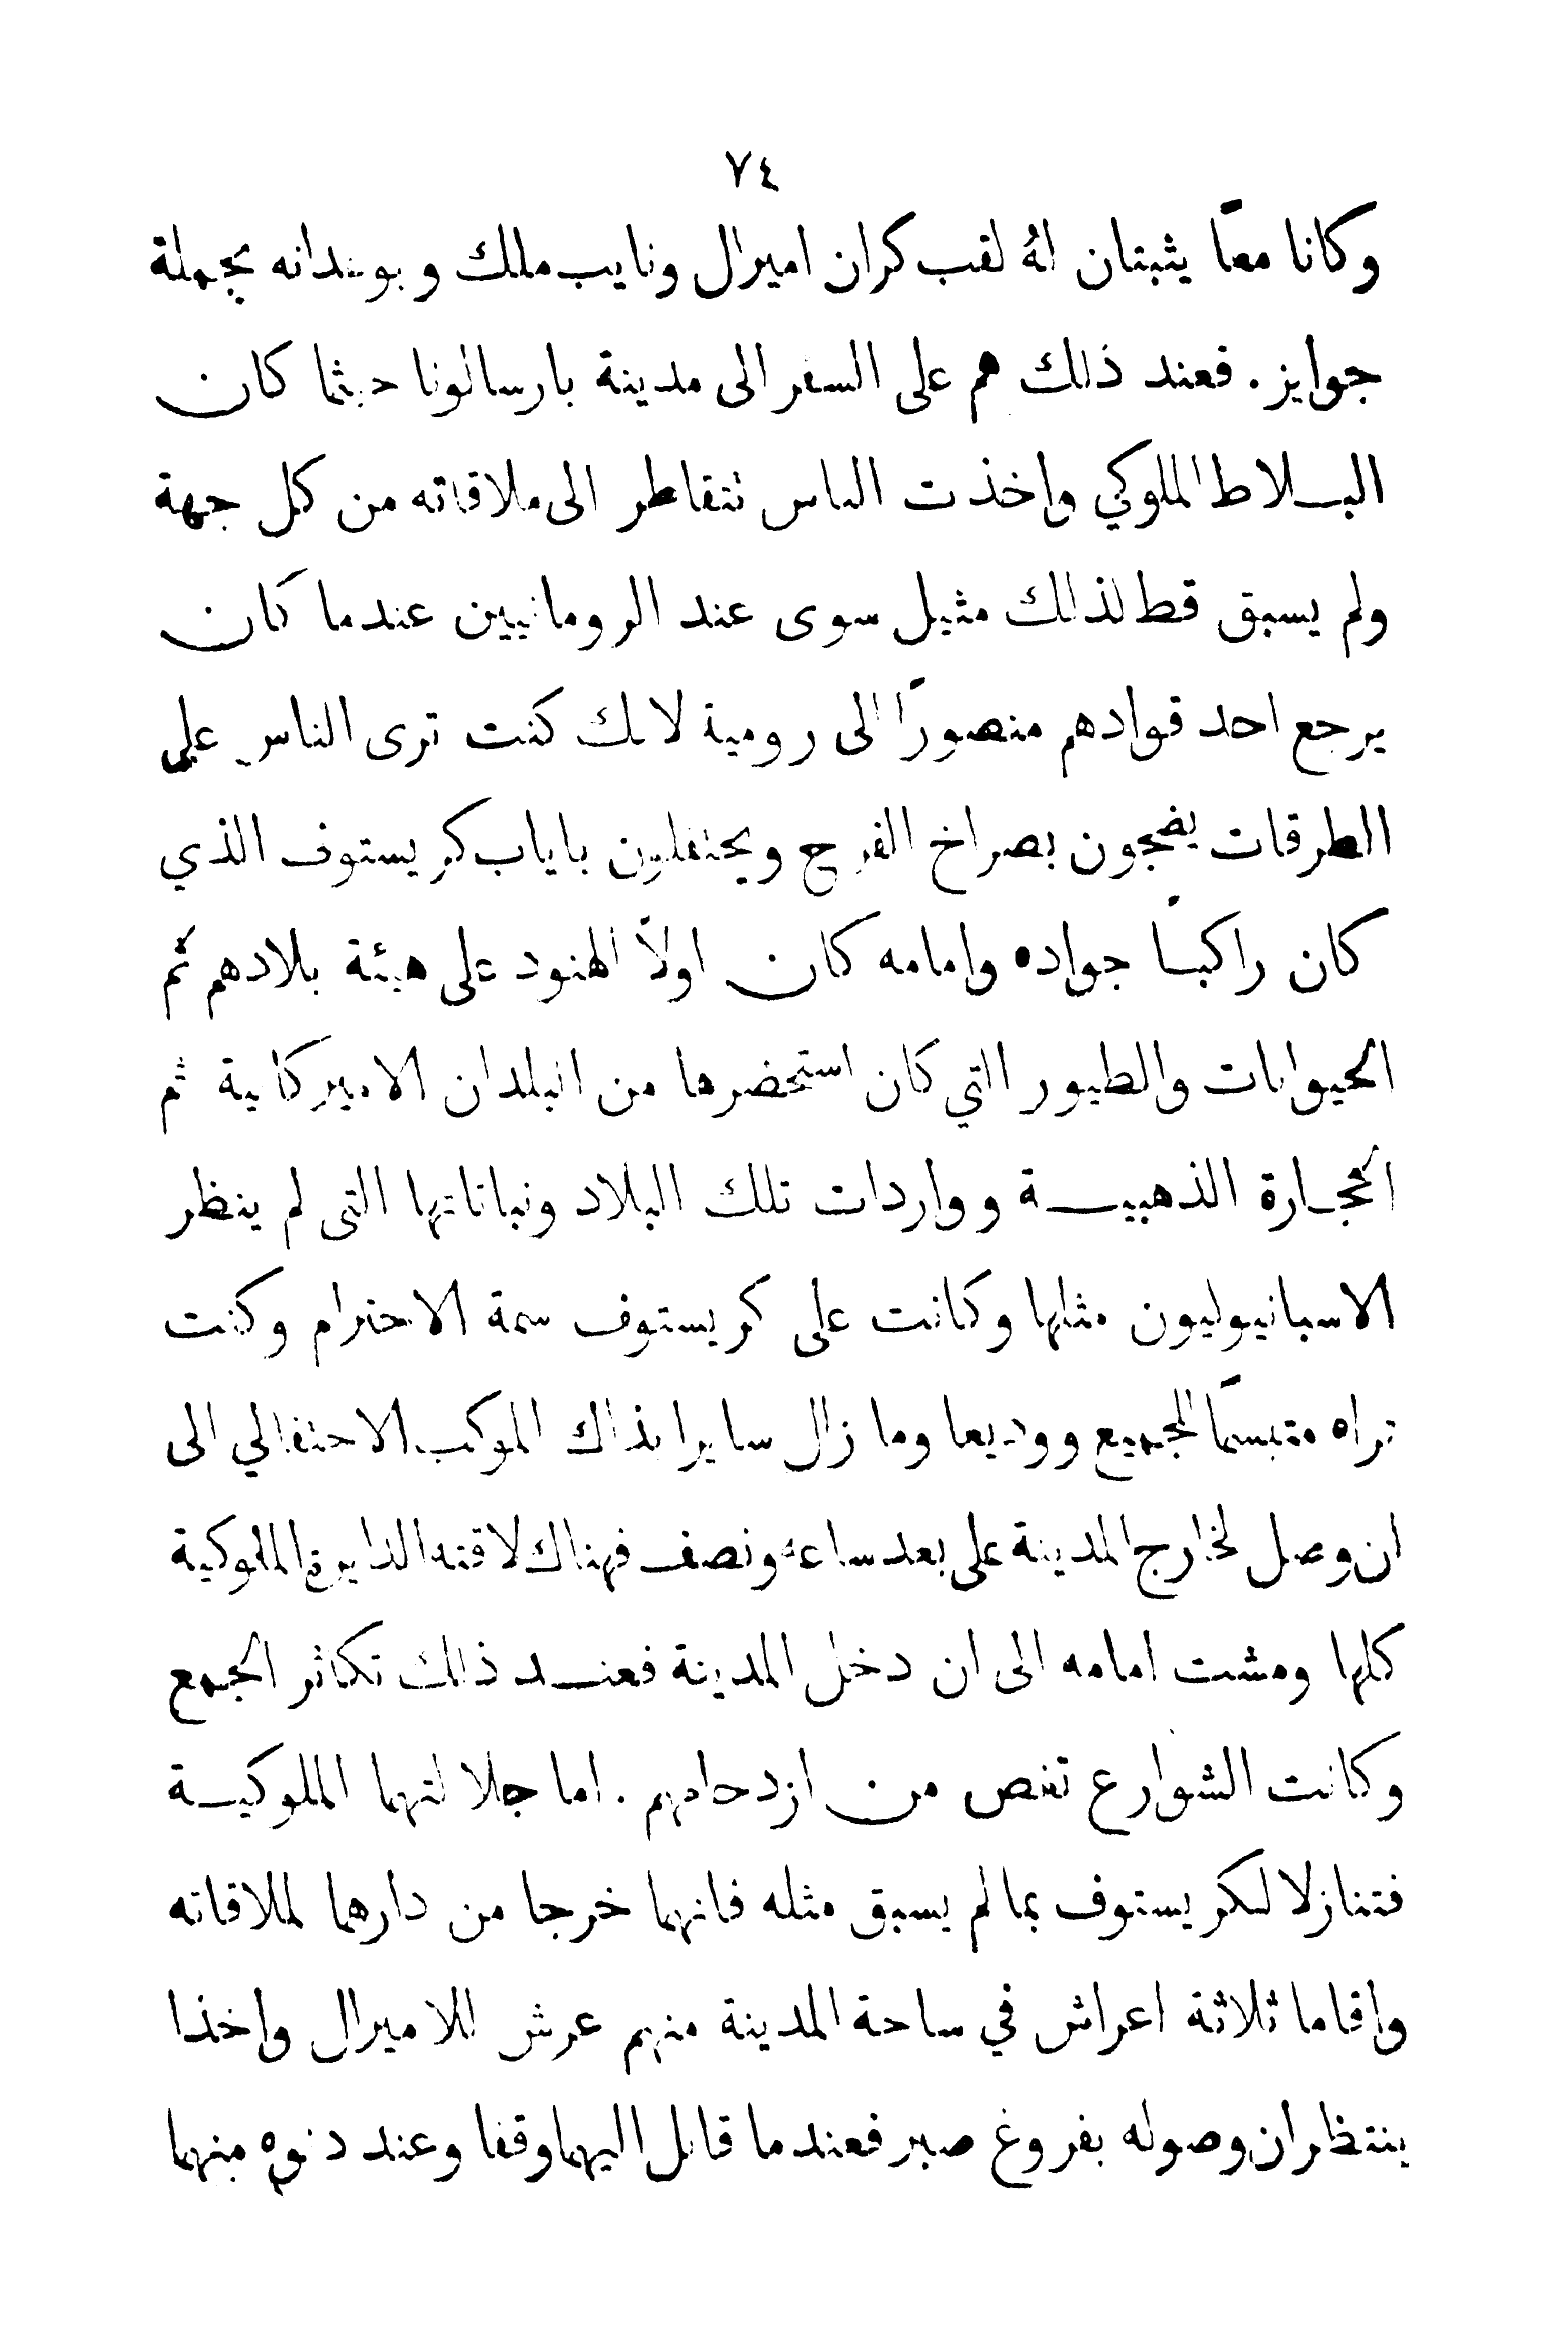 ٧٤
وكانا معًا يثبتان لهُ لقب كران اميرال ونايب ملك وبوعدانه بجملة
جوايز . فعند ذلك هم على السفر الى مدينة بارسالونا حيثما كان
البلاط الملوكي واخذت الناس تتقاطر الى ملاقاته من كل جهة
ولم يسبق قط لذلك مثيل سوى عند الرومانيين عندما كان
يرجع احد قوادهم منصورًا الى رومية لانك كنت ترى الناس على
الطرقات يضجون بصراخ الفرح ويحتفلون باياب كريستوف الذي
كان راكبًا جواده وامامه كان اولاً الهنود على هيئة بلادهم ثم
الحيوانات والطيور التي كان استحضرها من البلدان الاميركانية ثم
الحجارة الذهبية وواردات تلك البلاد ونباتاتها التى لم ينظر
الاسبانيوليون مثلها وكانت على كريستوف سمة الاحترام وكنت
تراه متبسمًا للجميع ووديعا وما زال سايرا بذاك الموكب الاحتفالي الى
ان وصل لخارج المدينة على بعد ساعه ونصف فهناك لاقته الدايرة الملوكية
كلها ومشت امامه الى ان دخل المدينة فعند ذلك تكاثر الجمع
وكانت الشوارع تغص من ازدحامهم . اما جلالتهما الملوكية
فتنازلا لكريستوف بما لم يسبق مثله فانهما خرجا من دارهما لملاقاته
واقاما ثلاثة اعراش في ساحة المدينة منهم عرش للاميرال واخذا
ينتظران وصوله بفروغ صبر فعندما قابل اليهما وقفا وعند دنوه منهما